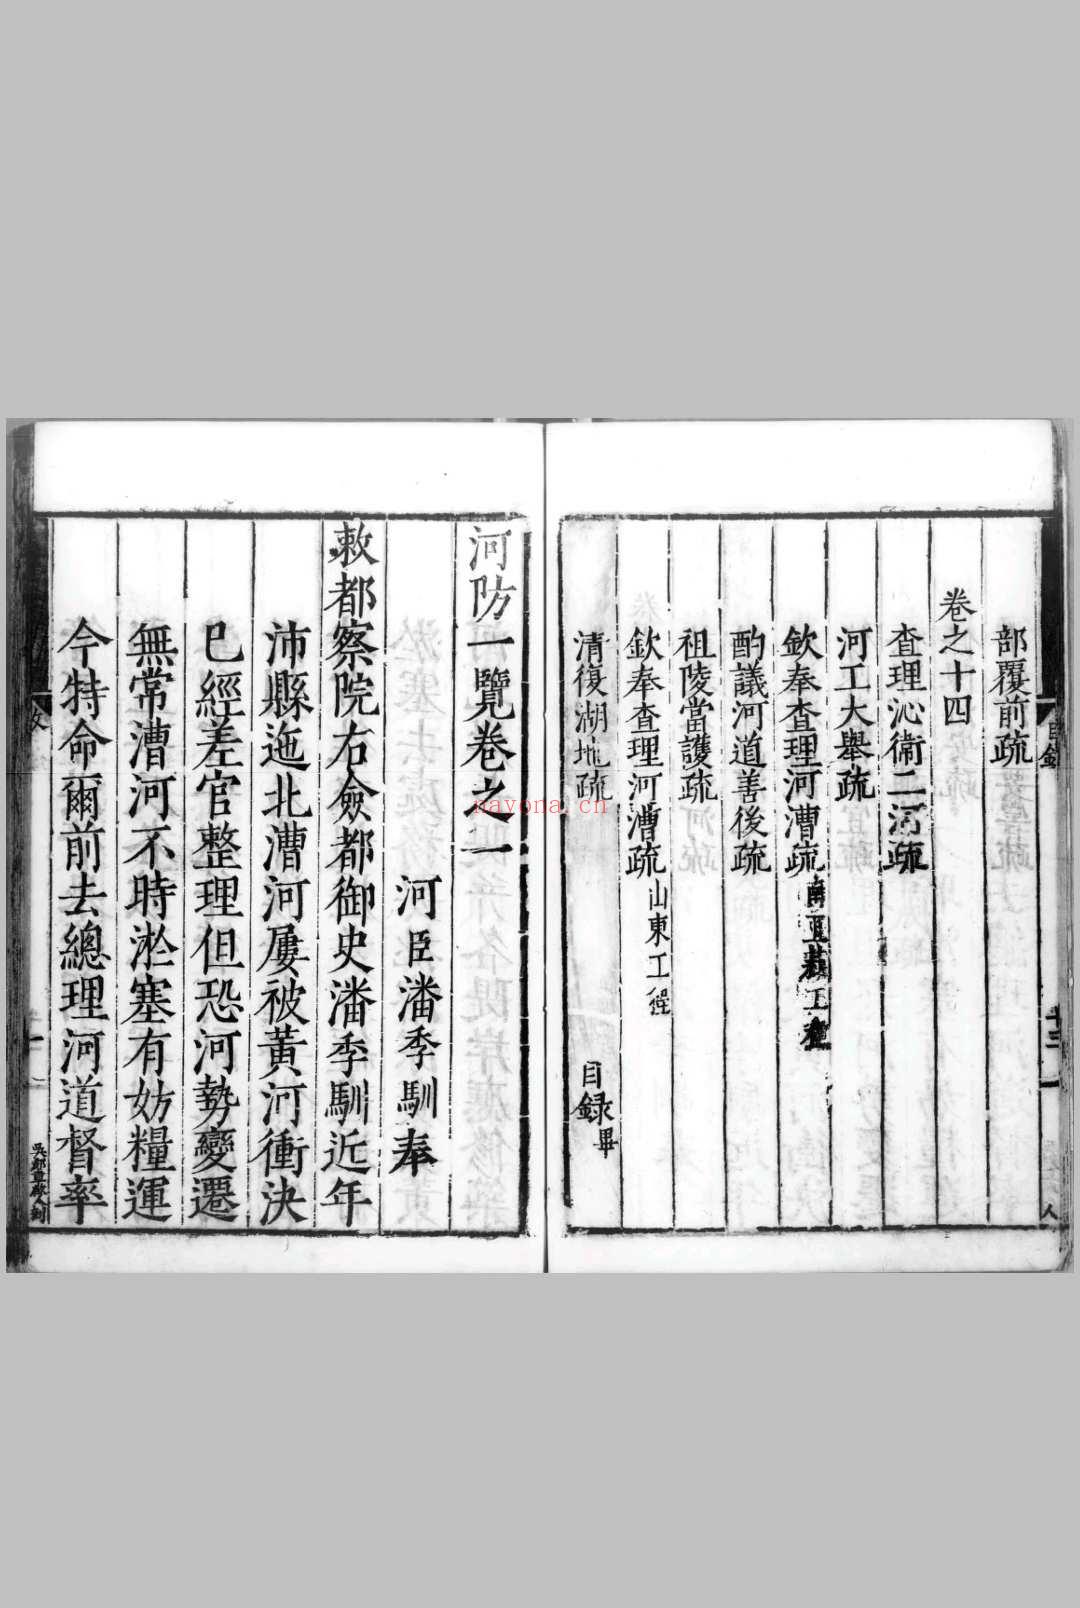 部覆前疏
卷之十四
查理沁衛二河疏
河工大舉疏
欽奉查理河漕疏
酌議河道善後疏
祖陵當護疏
欽奉查理河漕疏山東工程
清復湖地疏
目錄畢
目錄
河防一覽卷之一
河臣潘季馴奉
敕都察院右僉都御史潘季馴近年
沛縣迤北漕河屢被黃河衝決
已經差官整理但恐河勢變遷
無常漕河不時淤塞有妨糧運
今特命爾前去總理河道督率
nayona.cn